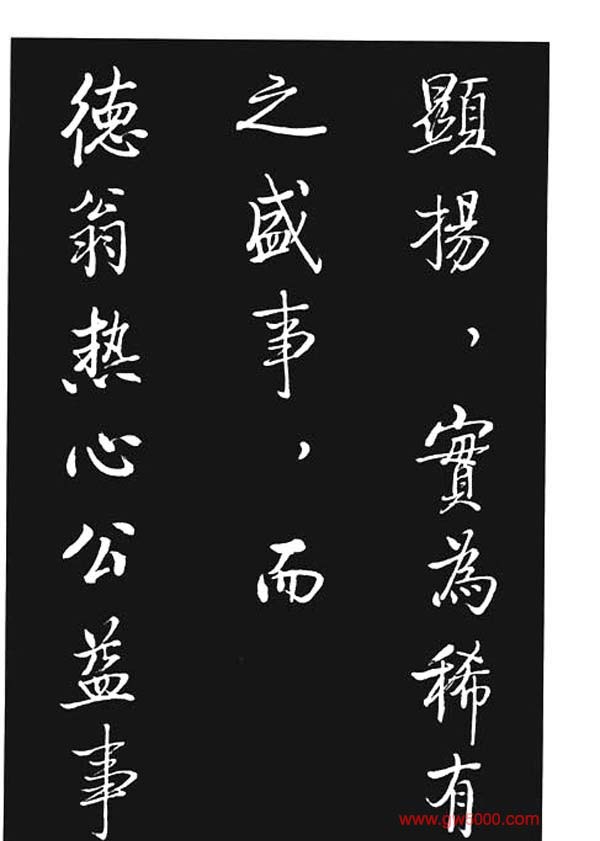 顯揚，實為稀有
之盛事，而
德翁热心公益事
www.gw5000.com